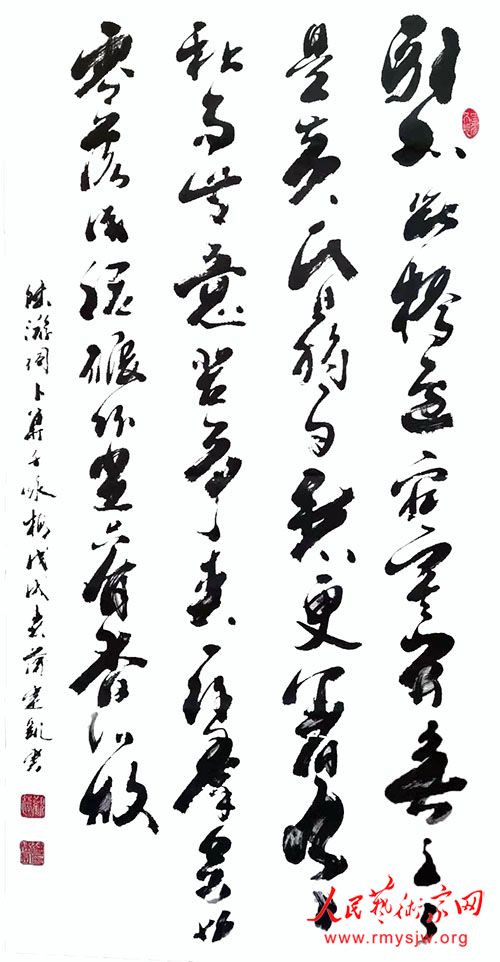 驿外断桥边寂寞开無主已
是黄昏独自愁更著风
和雨無意苦争春一任群芳妒
零落成泥碾作尘只有香如故
陆游词卜算子咏梅戊戌春
人民藝術家网
www.rmysjw.org